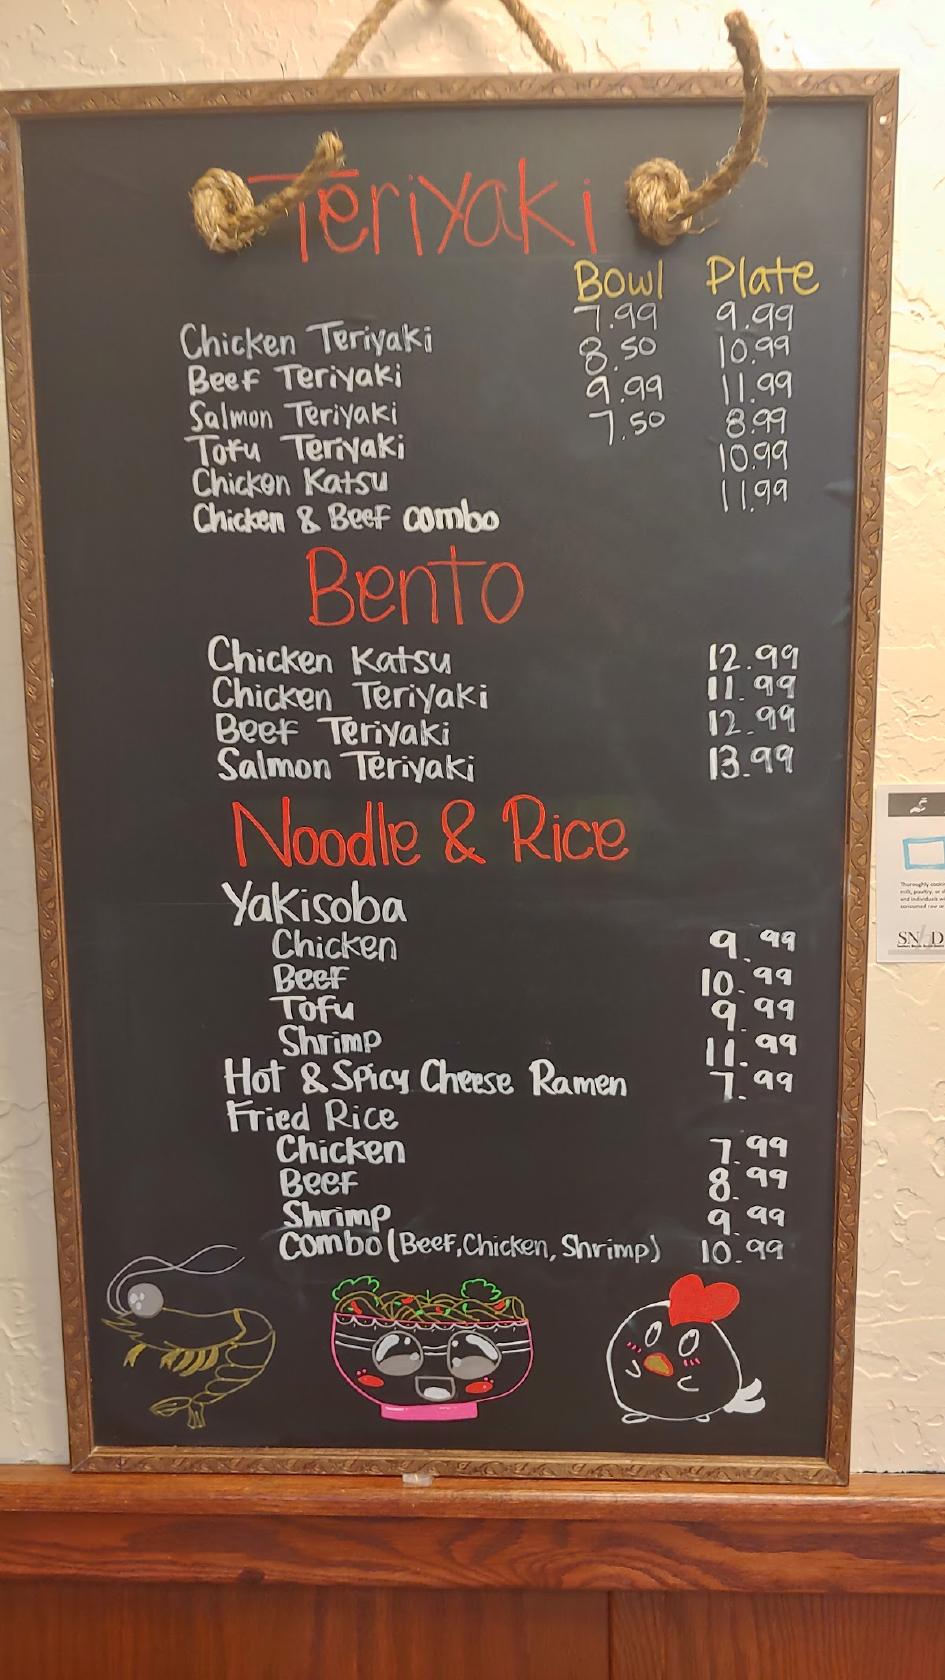 Teriyaki
Bowl Plate
Chicken Teriyaki 7.99 9.99
Beef Teriyaki 8.50 10.99
Salmon Teriyaki 9.99 11.99
Tofu Teriyaki 7.50 8.99
Chicken Katsu 10.99
Chicken & Beef combo 11.99
Bento
Chicken Katsu 12.99
Chicken Teriyaki 11.99
Beef Teriyaki 12.99
Salmon Teriyaki 13.99
Noodle & Rice
Yakisoba
Chicken 9.99
Beef 10.99
Tofu 9.99
Shrimp 11.99
Hot & Spicy Cheese Ramen 7.99
Fried Rice
Chicken 7.99
Beef 8.99
Shrimp 9.99
Combo (Beef, Chicken, Shrimp) 10.99
Thoroughly cooki
milk, poultry, or
and individuals
consumed raw
SN D